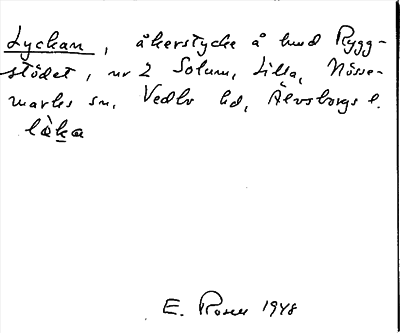 Lyckan, åkerstycke å hmd Rygg-
stödet, nr 2 Solum, Lilla, Nösse-
marks sn, Vedbo hd, Älvsborgs l.
låka
E. Rosen 1948